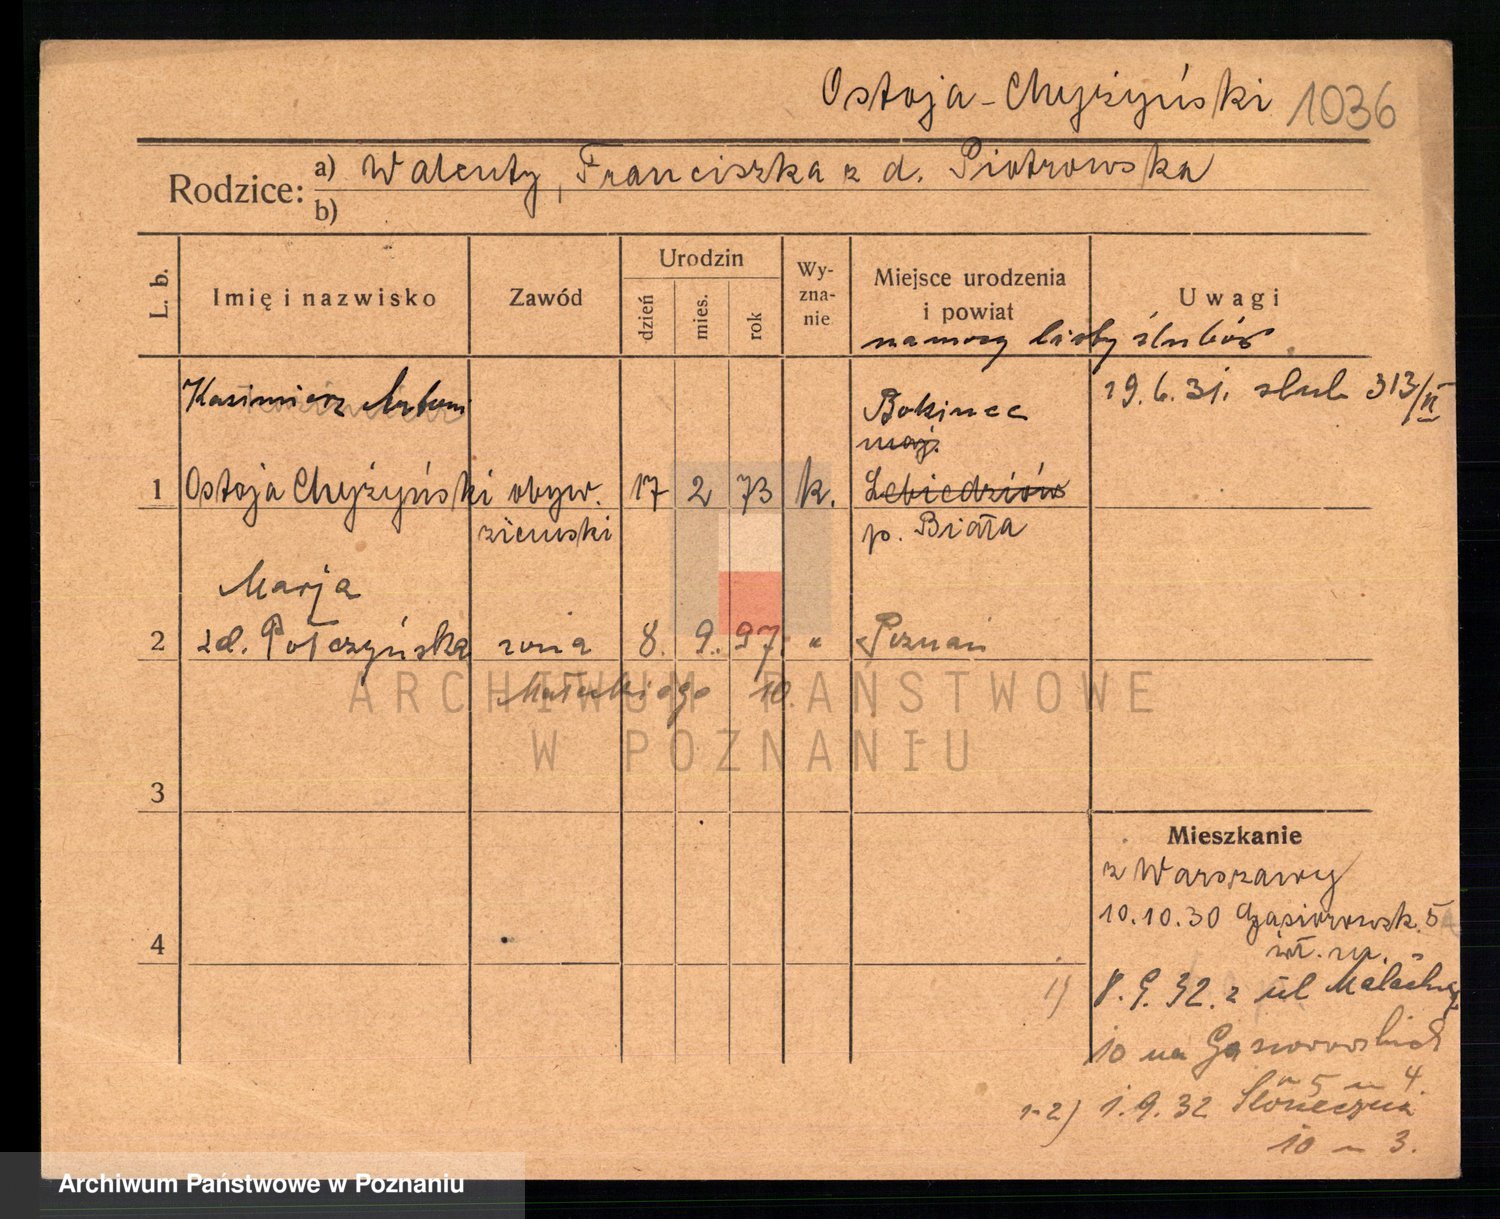 Ostoja-Chyżyński 1036
Rodzice: a) Walenty, Franciszka z d. Piotrowska
b)
L. b.
Imię i nazwisko
Zawód
Urodzin
dzień
mies.
rok
Wy-
zna-
nie
Miejsce urodzenia
i powiat
Uwagi
na mocy listy ślubów
Kazimierz Antoni
Bokinec
19.6.31. slub 313/II
maj.
1 Ostoja Chyżyński obyw. 17 2 73 k. Lebiedziów
ziemski p. Biała
Marja
2 zd. Połczyńska żona 8. 9. 97. " Poznań
Małeckiego 10.
ARCHIWUM PAŃSTWOWE
W POZNANIU
3
Mieszkanie
z Warszawy
10.10.30 Gąsiorowsk. 5
4
1) 8. 32. z ul
10 na Gąsiorowskich
5 m 4.
1-2) 1.9.32 Słoneczna
10 m 3.
Archiwum Państwowe w Poznaniu